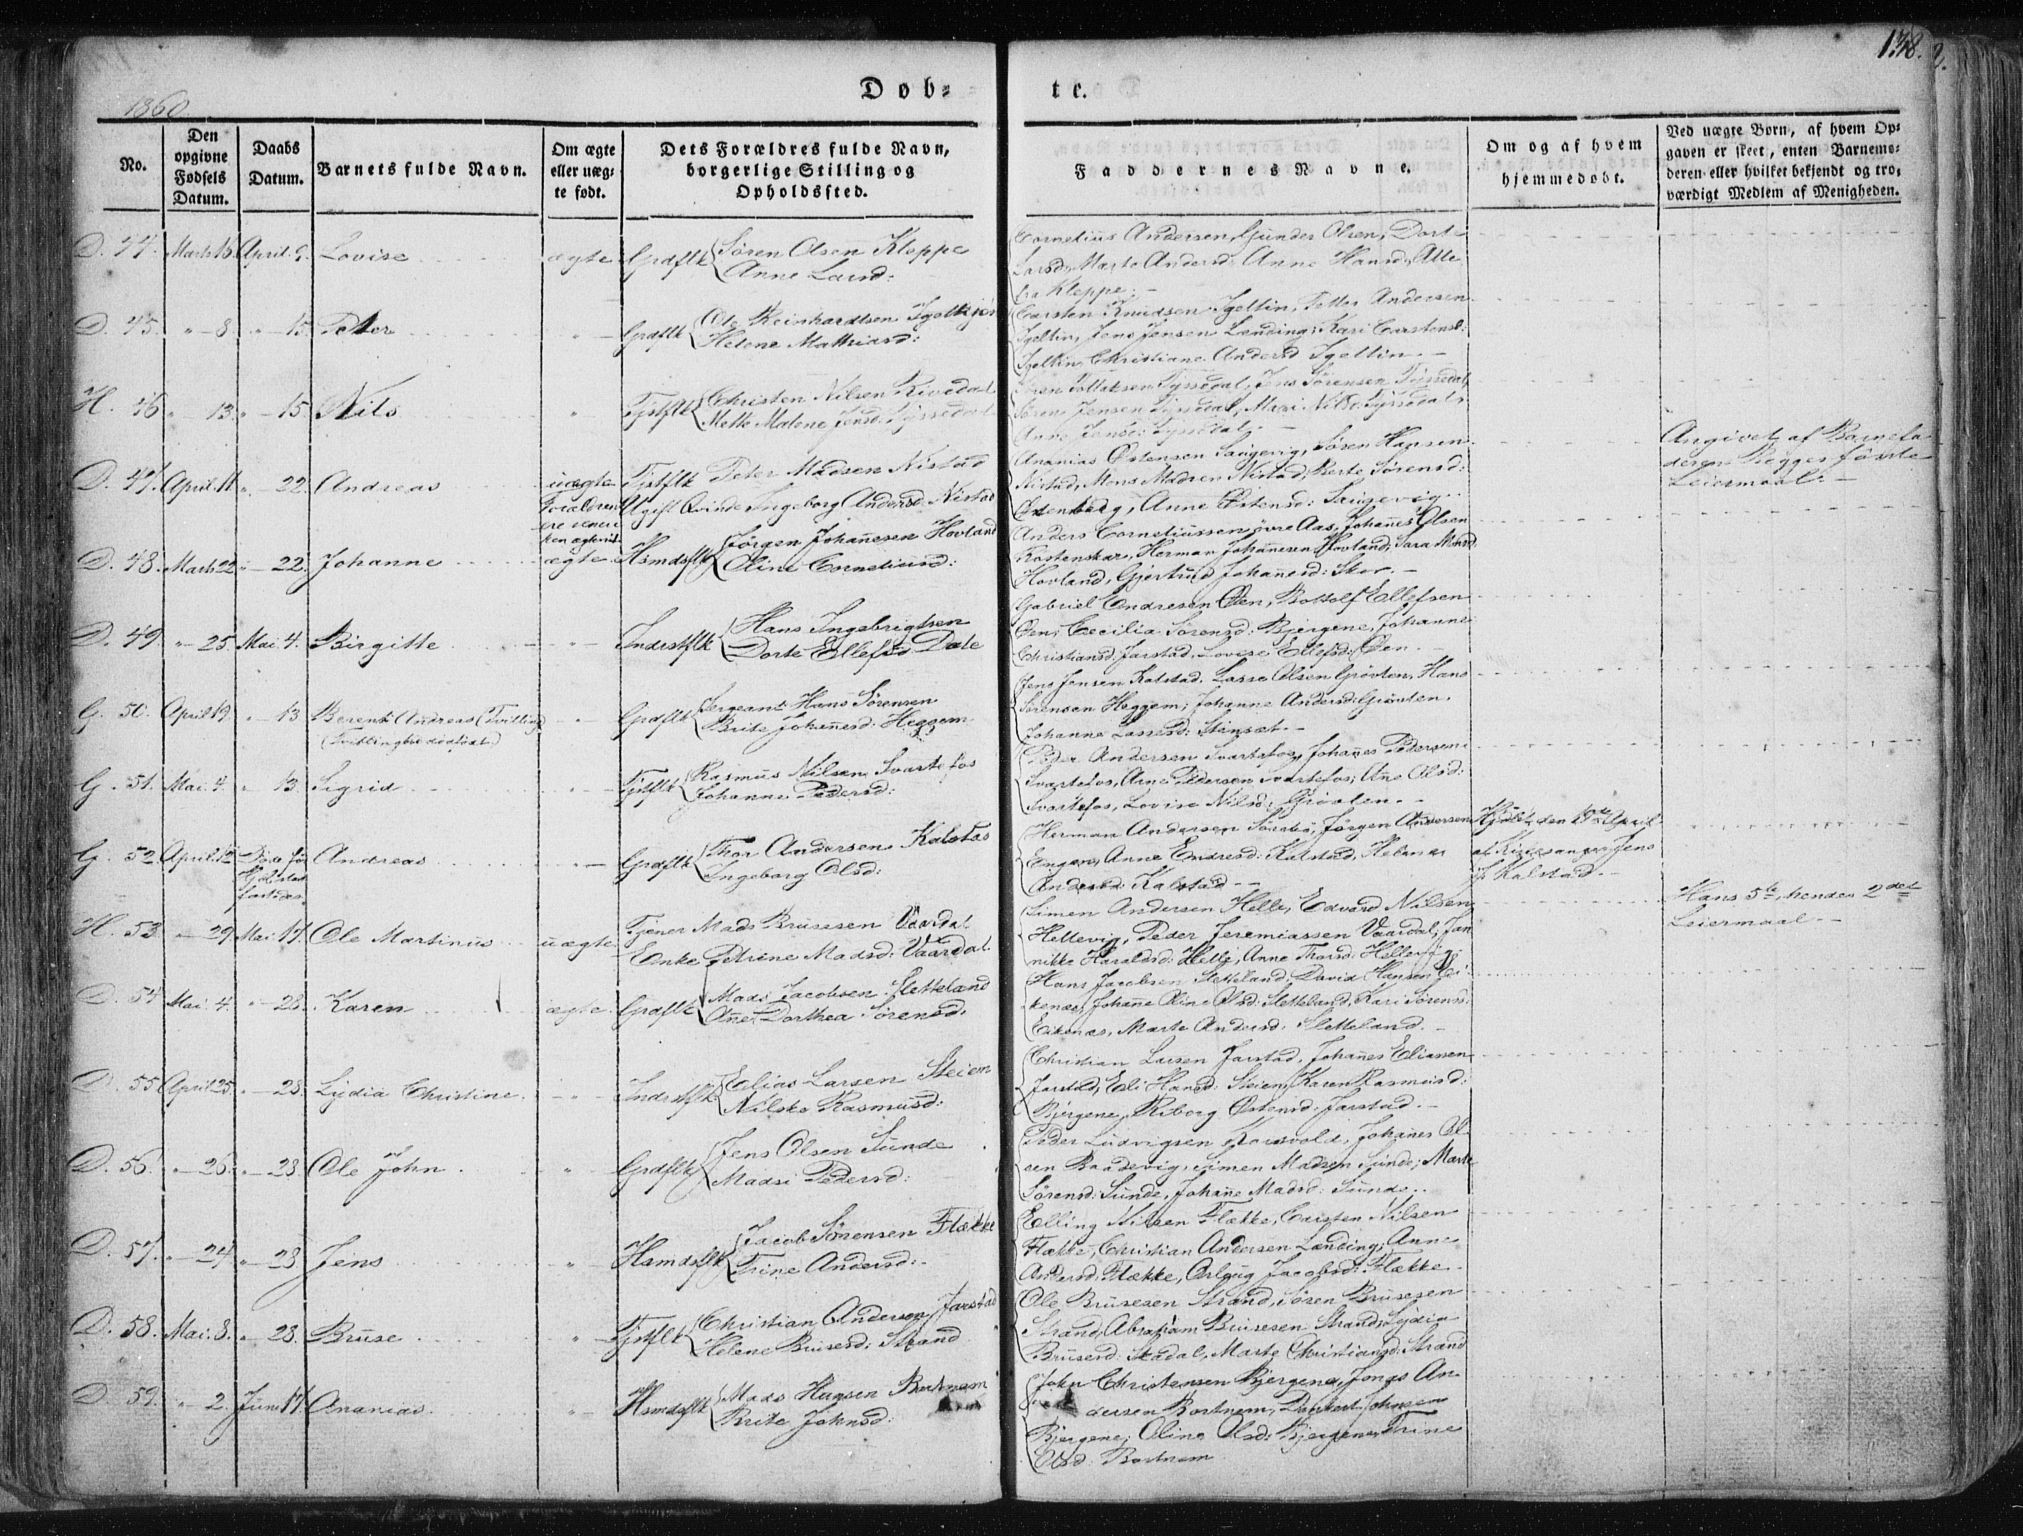 1860
Døb=
te.
138.
No.
Den
opgivne
Fødsels
Datum.
Daabs
Datum.
Barnets fulde Navn.
Om ægte
eller uæg=
te født.
Dets Forældres fulde Navn,
borgerlige Stilling og
Opholdssted.
Faddernes Navne.
Om og af hvem
hjemmedøbt.
Ved uægte Børn, af hvem Op=
gaven er skeet, enten Barnemo=
deren eller hvilket bekjendt og tro=
værdigt Medlem af Menigheden.
D. 44. Marts 16. April 9. Lovise ægte Grdflk Søren Olsen Kleppe
Anne Larsd:
Cornelius Andersen, Gunder Olsen, Dorte
Larsd: Marte Andersd: Anne Hansd: Alle
fra Kleppe.
D. 45. " 8 " 15. Peter " Grdflk Ole Reinhardtsen
Helene Mathiasd:
Carsten Knudsen Igeltin, Petter Andersen
Igeltin, Jens Jensen Lending; Kari Carstensd:
Igeltin, Christiane Andersd Igeltin.
H. 46 " 13. " 15. Nils " Tjstflk Christen Nilsen Rivedal
Mette Malene Jensd: Tyssedal
Tyssedal, Jens Sørensen Tyssedal,
Søren Jensen Tyssedal, Mari Nilsd: Tyssedal
Anne Jensd: Tyssedal.
D. 47. April 11 " 22. Andreas uægte Tjstflk Peter Madsen Nistad
Forældrene
Ugift Qvinde Ingeborg Andersd: Nistad
Ananias Østensen Saugevig, Søren Hansen
Nistad, Mons Madsen Nistad, Berte Sørensd:
Anne Østensd: Saugevig.
Angivet af Barnefa-
deren Begges første
Leiermaal.
D. 48. Marts 22 " 22. Johanne ægte Hsmdsflk Jørgen Johanesen Hovland
Oline Corneliusd:
Anders Corneliussen øvre Aas, Johanes Olsen
Herman Johanesen Hovland, Sara Monsd
Hovland, Gjertrud Johanesd: Skor.
D. 49. " 25. Mai. 4. Birgitte " Inderstflk Hans Ingebrigtsen
Dorte Ellefsd Dale
Gabriel Andresen Øen, Bottolf Ellefsen
Øen; Cecilia Sørensd: Bjergene, Johanne
Christiansd. Jarstad, Lovise Ellefsd: Øen.
G. 50. April 19 " 13 Berent Andreas (Tvilling)
(Tvillingbr dødfødt)
" Grdflk Sergeant Hans Sørensen
Brite Johanesd: Heggem
Jens Jensen Kalstad, Lasse Olsen Grøvlen, Hans
Sørensen Heggem, Johanne Andersd: Grøvlen.
Johanne Lassesd: Stensæt.
G. 51. Mai. 4. " 13. Sigrid " Tjstflk Rasmus Nilsen Svartefos
Johanne Pedersd:
Peder Andersen Svartefos, Johanes Pedersen
Svartefos, Arne Pedersen Svartefos, Ane Olsd:
Svartefos, Lovise Nilsd: Grøvlen.
G. 52 April 12 Døde før
Andreas " Grdflk Thor Andersen Kalstad
Ingeborg Olsd:
Herman Andersen Jørgen Andersen
Engen, Anne Endresd: Kalstad, Helene
Andersd: Kalstad
Hjdøbt den April
af Kirkesanger Jens
Kalstad.
H. 53 " 29 Mai 17. Ole Martinus uægte Tjener Mads Brusesen Vaardal
Enke Petrine Madsd: Vaardal
Simen Andersen Helle, Edvard Nilsen
Hellevig, Peder Jeremiassen Vaardal; Jan
nikke Haraldsd: Helle, Anne Thorsd: Hellevig.
Hans 5te, hendes 2det
Leiermaal.
D. 54 Mai. 4. " 28. Karen ægte Grdflk Mads Jacobsen Sletteland
Ane Dorthea Sørensd.
Hans Jacobsen Sletteland, David Hansen Ei-
kenæs, Johane Oline Olsd: Sletteland, Kari Sørensd:
Eikenæs, Marte Andersd: Sletteland.
D. 55 April 25. " 28. Lydia Christine " Indrstflk Elias Larsen Steien
Nilske Rasmusd:
Christian Larsen Jarstad, Johanes Eliassen
Jarstad, Eli Hansd: Steien, Karen Rasmusd:
Bjergene, Riborg Østensd: Jarstad.
D. 56. " 26. " 28 Ole John " Grdflk Jens Olsen Sunde
Madsi Pedersd:
Peder Ludvigsen Korsvold, Johanes Ol-
sen Baadevig, Simen Madsen Sunde; Marte
Sørensd: Sunde, Johane Madsd: Sunde.
D. 57. " 24. " 28 Jens " Hsmdsflk Jacob Sørensen Flække
Trine Andersd:
Elling Nilsen Flække, Carsten Nilsen
Flække, Christian Andersen Lending; Anne
Andersd: Flække, Jacobsd: Flække
D. 58. Mai. 8. " 28. Bruse " Tjstflk Christian Andersen Jarstad
Helene Brusesd: Strand
Ole Brusesen Strand, Søren Brusesen
Strand, Abraham Brusesen Strand; Lydia
Brusesd: Skadal, Marte Christiansd: Strand
D. 59. " 2. Juni 17. Ananias " Hsmdsflk Mads Hansen Bortnem
Brite Johnsd:
John Christensen Bjergene, Jonas An-
dersen Bortnem, Dankert Johnsen
Bjergene; Oline Olsd: Bjergene, Trine
Olsd. Bortnem